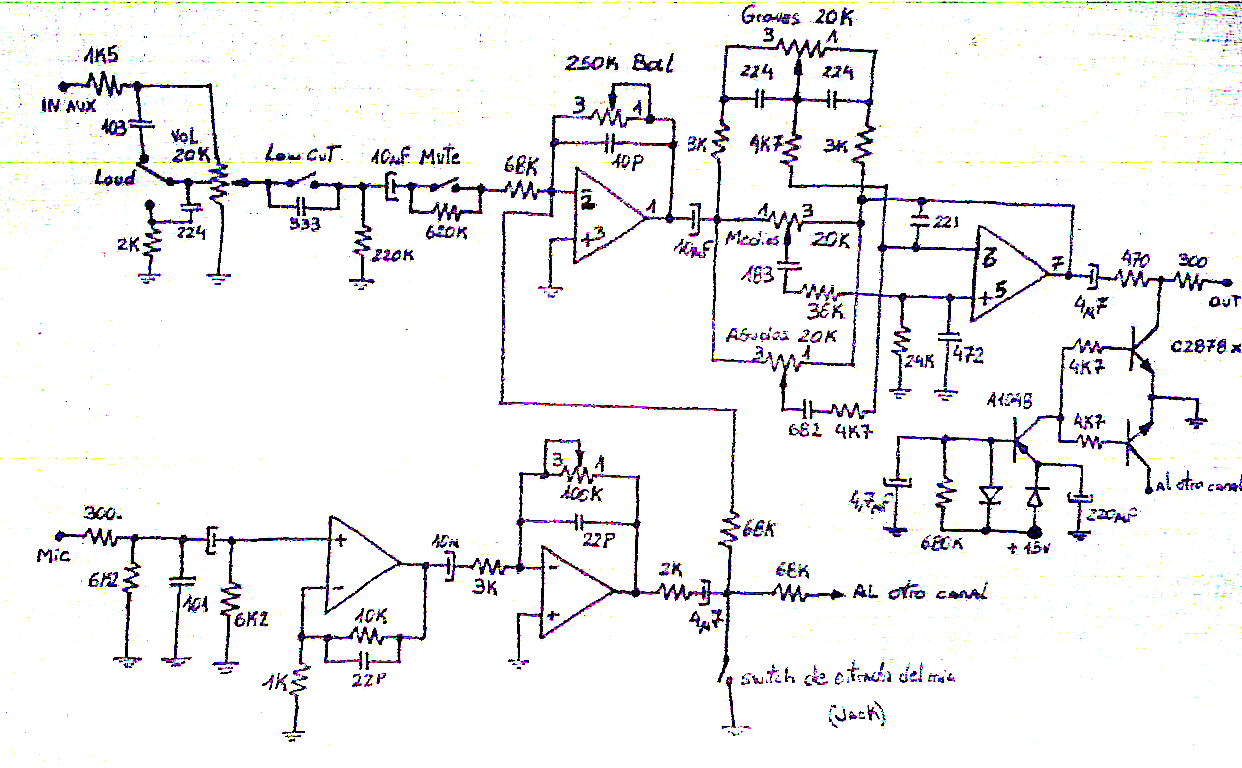 Graves 20K
3
1
224
224
1K5
IN AUX
103
VOL
20K
Loud
2K
224
Low CUT
333
10µF
Mute
220K
620K
68K
250K Bal
3
1
10P
2
+3
1
10µF
3K
4K7
3K
Medios
1
3
20K
183
36K
Agudos 20K
3
1
682
4K7
221
6
+5
7
24K
472
4µ7
470
300
OUT
C2878 x
4K7
4K7
Al otro canal
4,7µF
680K
+15v
220µF
300
Mic
6K2
101
6K2
+
-
1K
10K
22P
3K
3
1
100K
22P
-
+
2K
4µ7
68K
68K
AL otro canal
switch de entrada del mic
(Jack)